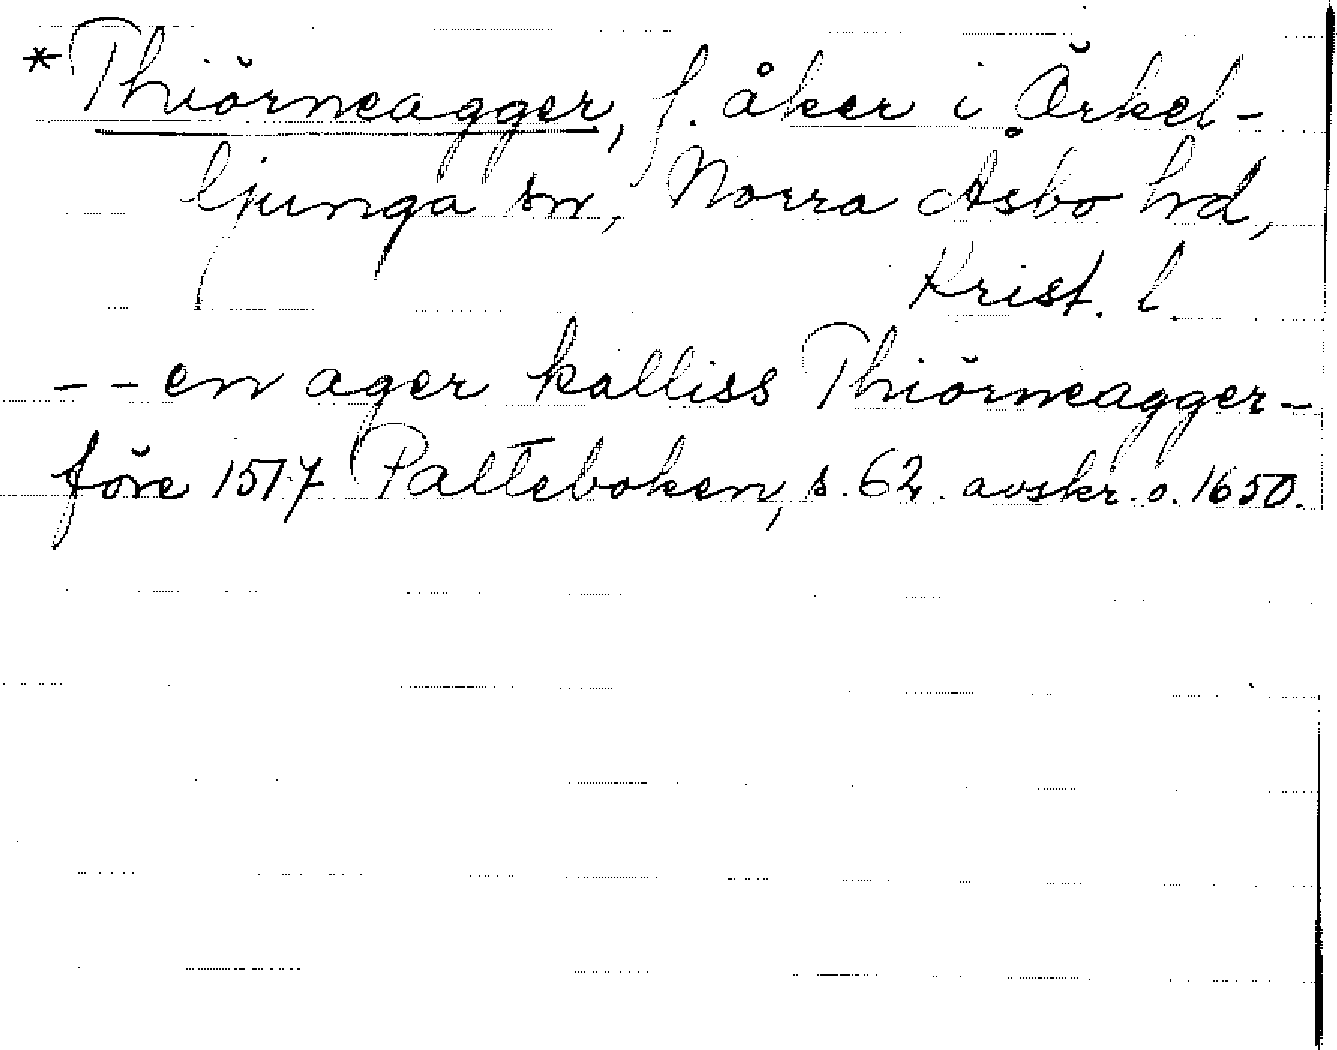 *Thiörneagger, f. åker i Örkel-
ljunga sn, Norra Åsbo hd,
Krist. l.
--en ager kalliss Thiörneagger-
före 1517 Palteboken, s. 62. avskr. o. 1650.